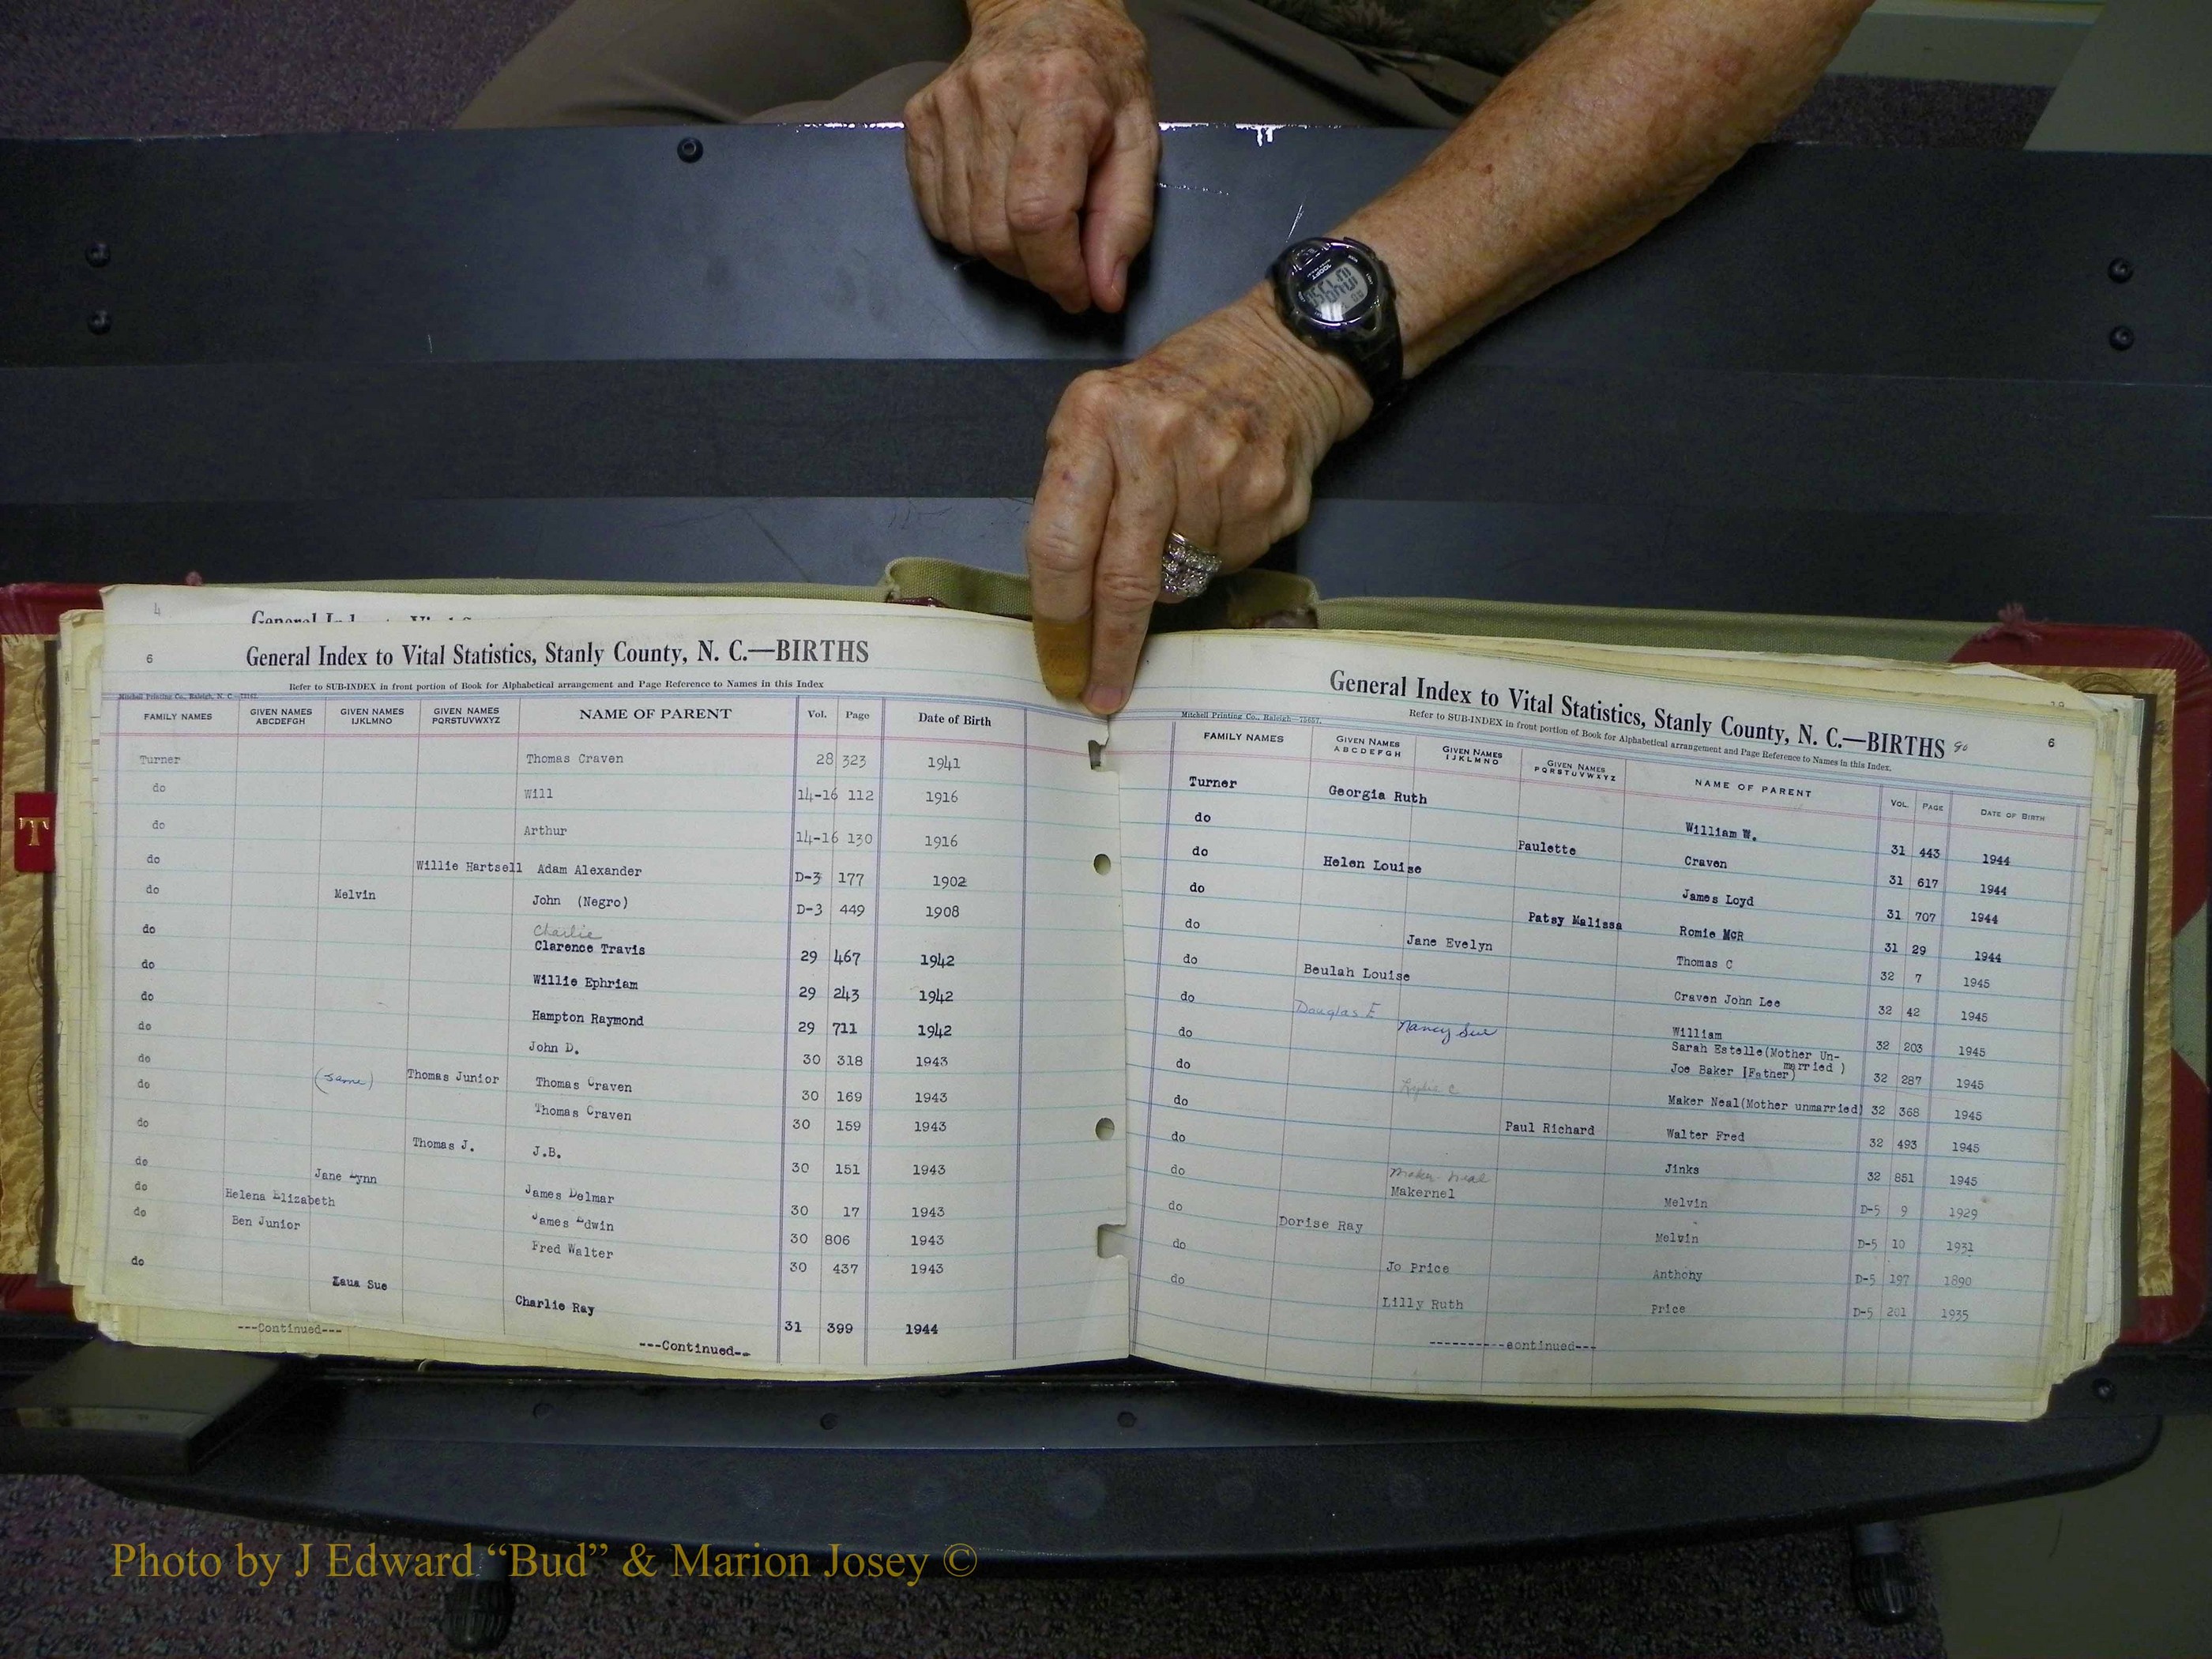 4
6
General Index to Vital Statistics, Stanly County, N. C.—BIRTHS
Refer to SUB-INDEX in front portion of Book for Alphabetical arrangement and Page Reference to Names in this Index
Mitchell Printing Co., Raleigh, N. C.
FAMILY NAMES GIVEN NAMES ABCDEFGH GIVEN NAMES IJKLMNO GIVEN NAMES PQRSTUVWXYZ NAME OF PARENT Vol. Page Date of Birth
Turner Thomas Craven 28 323 1941
do Will 14-16 112 1916
do Arthur 14-16 130 1916
do Willie Hartsell Adam Alexander D-3 177 1902
do Melvin John (Negro) D-3 449 1908
Charlie
do Clarence Travis 29 467 1942
do Willie Ephriam 29 243 1942
do Hampton Raymond 29 711 1942
do John D. 30 318 1943
do Thomas Junior Thomas Craven 30 169 1943
do (same) Thomas Craven 30 159 1943
do Thomas J. J.B. 30 151 1943
do Jane Lynn James Delmar 30 17 1943
do Helena Elizabeth James Edwin 30 806 1943
do Ben Junior Fred Walter 30 437 1943
do Laua Sue Charlie Ray 31 399 1944
---Continued---
---Continued--
T
General Index to Vital Statistics, Stanly County, N. C.—BIRTHS 90
6
Refer to SUB-INDEX in front portion of Book for Alphabetical arrangement and Page Reference to Names in this Index.
Mitchell Printing Co., Raleigh—75657.
FAMILY NAMES GIVEN NAMES ABCDEFGH GIVEN NAMES IJKLMNO GIVEN NAMES PQRSTUVWXYZ NAME OF PARENT VOL. PAGE DATE OF BIRTH
Turner Georgia Ruth William W. 31 443 1944
do Paulette Craven 31 617 1944
do Helen Louise James Loyd 31 707 1944
do Patsy Malissa Romie McR 31 29 1944
do Jane Evelyn Thomas C 32 7 1945
do Beulah Louise Craven John Lee 32 42 1945
do Douglas E William 32 203 1945
do Nancy Sue Sarah Estelle(Mother Un-
married )
Joe Baker [Father) 32 287 1945
do Lydia C Maker Neal(Mother unmarried) 32 368 1945
do Paul Richard Walter Fred 32 493 1945
do Jinks 32 851 1945
Maker Neal
do Makernel Melvin D-5 9 1929
do Dorise Ray Melvin D-5 10 1931
do Jo Price Anthony D-5 197 1890
do Lilly Ruth Price D-5 201 1935
----------continued---
Photo by J Edward “Bud” & Marion Josey ©